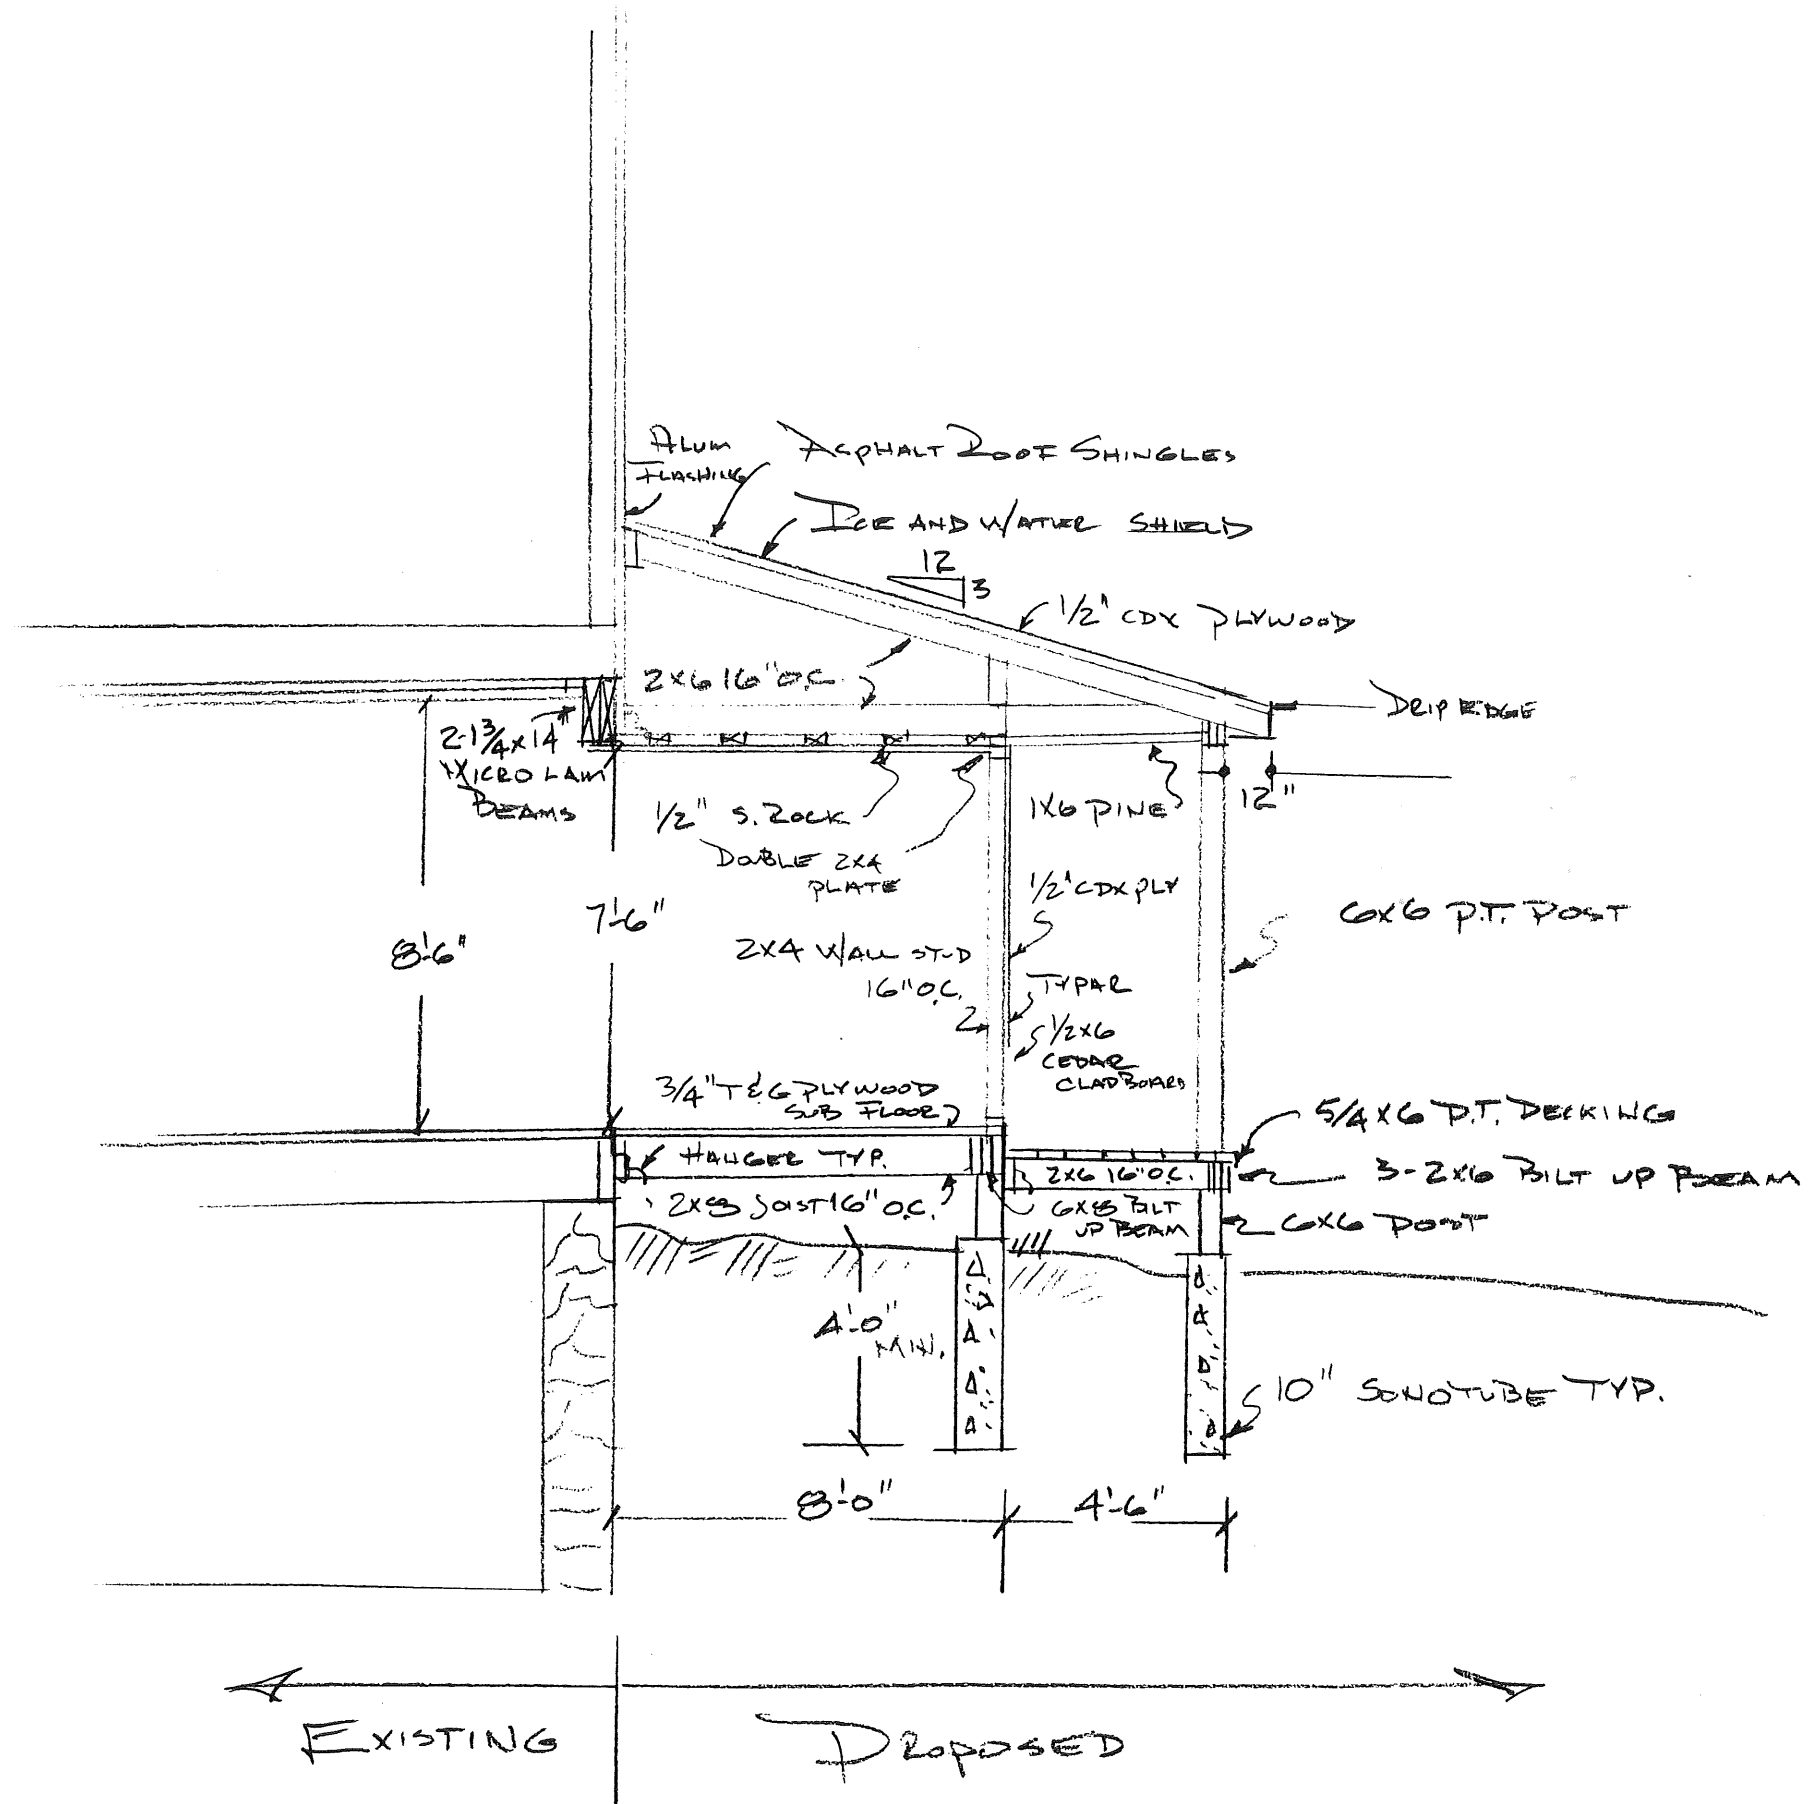 ALUM
FLASHING
ASPHALT ROOF SHINGLES
ICE AND WATER SHIELD
12
3
1/2" CDX PLYWOOD
2X6 16" O.C.
DRIP EDGE
2-1 3/4 X 14"
MICRO LAM
BEAMS
1/2" S. ROCK
1X6 PINE
12"
DOUBLE 2X4
PLATE
1/2" CDX PLY
7'-6"
6X6 P.T. POST
8'-6"
2X4 WALL STUD
16" O.C.
TYPAR
1/2X6
CEDAR
CLAPBOARD
3/4" T & G PLYWOOD
SUB FLOOR
5/4X6 P.T. DECKING
HANGER TYP.
2X6 16" O.C.
3-2X6 BILT UP BEAM
2X8 JOIST 16" O.C.
6X8 BILT
UP BEAM
6X6 POST
4'-0"
MIN.
10" SONOTUBE TYP.
8'-0"
4'-6"
EXISTING
PROPOSED